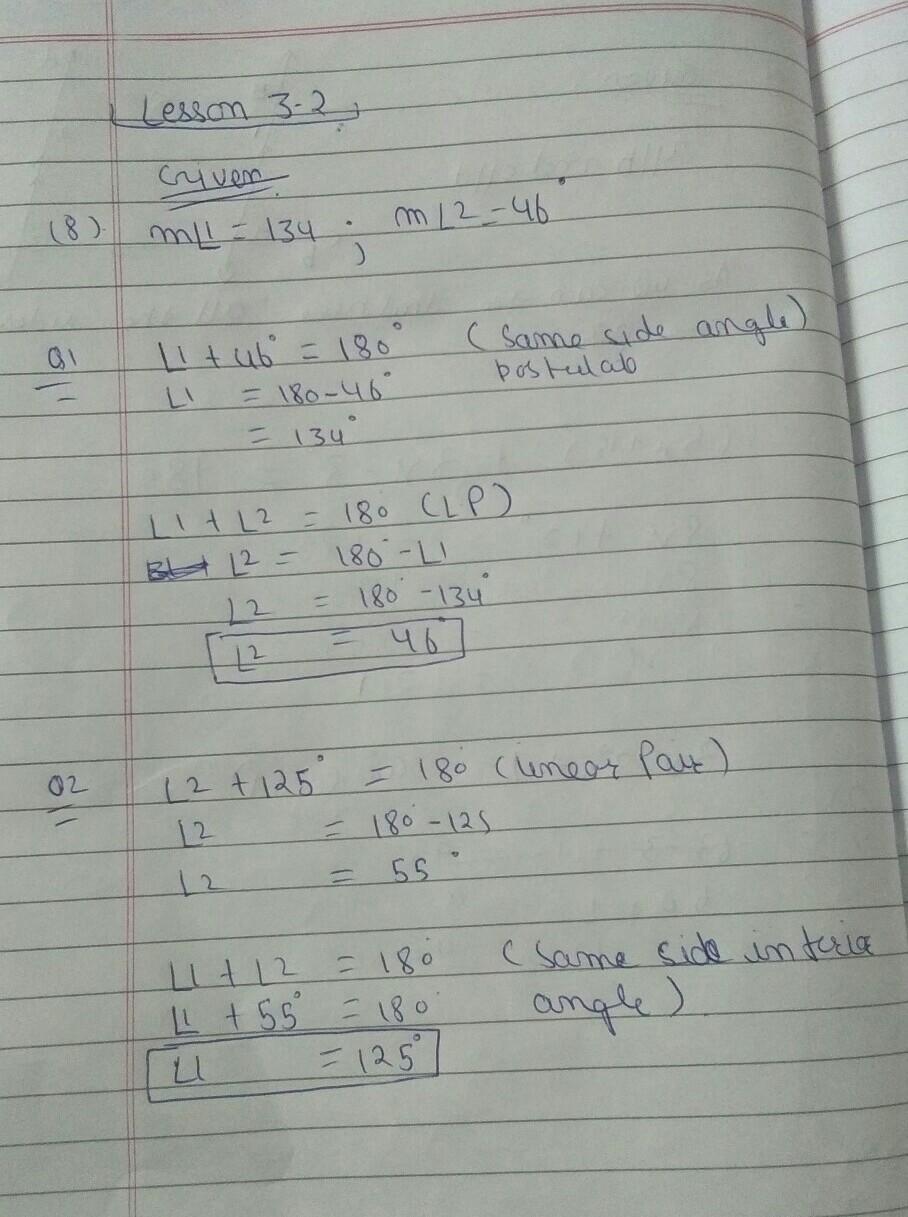 Lesson 3-2
Given
(8). m∠1 = 134 ; m∠2 = 46°
Q1 ∠1 + 46° = 180° (Same side angle)
postulab
∠1 = 180 - 46°
= 134°
∠1 + ∠2 = 180 (LP)
∠2 = 180° - ∠1
∠2 = 180° - 134°
∠2 = 46°
Q2 ∠2 + 125° = 180 (Linear Pair)
∠2 = 180 - 125
∠2 = 55°
∠1 + ∠2 = 180° (Same side interior
∠1 + 55° = 180 angle)
∠1 = 125°